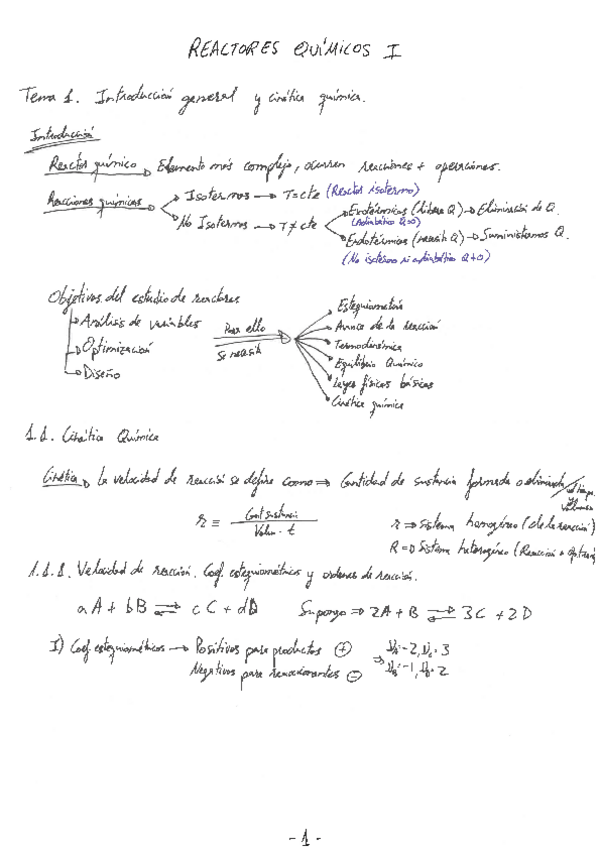 REACTORES QUÍMICOS I
Tema 1. Introducción general y cinética química.
Introducción
Reactor químico → Elemento más complejo, ocurren reacciones + operaciones.
Reacciones químicas → Isotermos → T=cte (Reactor isotermo)
→ No Isotermos → T≠cte
→ Exotérmicas (libera Q) → Eliminación de Q.
(Adiabático Q=0)
→ Endotérmicas (necesita Q) → Suministramos Q.
(No isotermo ni adiabático Q≠0)
Objetivos del estudio de reactores
→ Análisis de variables
→ Optimización
→ Diseño
Para ello
Se necesita
Estequiometría
Avance de la reacción
Termodinámica
Equilibrio Químico
Leyes físicas básicas
Cinética química
1.1. Cinética Química
Cinética → La velocidad de reacción se define como ⇒ Cantidad de sustancia formada o eliminada / tiempo
Volumen
r ≡ Cant sustancia / Volum · t
r ⇒ Sistema homogéneo (de la reacción)
R ⇒ Sistema heterogéneo (Reacción +
1.1.1. Velocidad de reacción. Coef. estequiométricos y ordenes de reacción.
aA + bB ⇌ cC + dD Supongo ⇒ 2A + B ⇌ 3C + 2D
I) Coef. estequiométicos → Positivos para productos ⊕
Negativos para ⊖
⇒ νA=-2, νC=3
νB=-1, νD=2
- 1 -